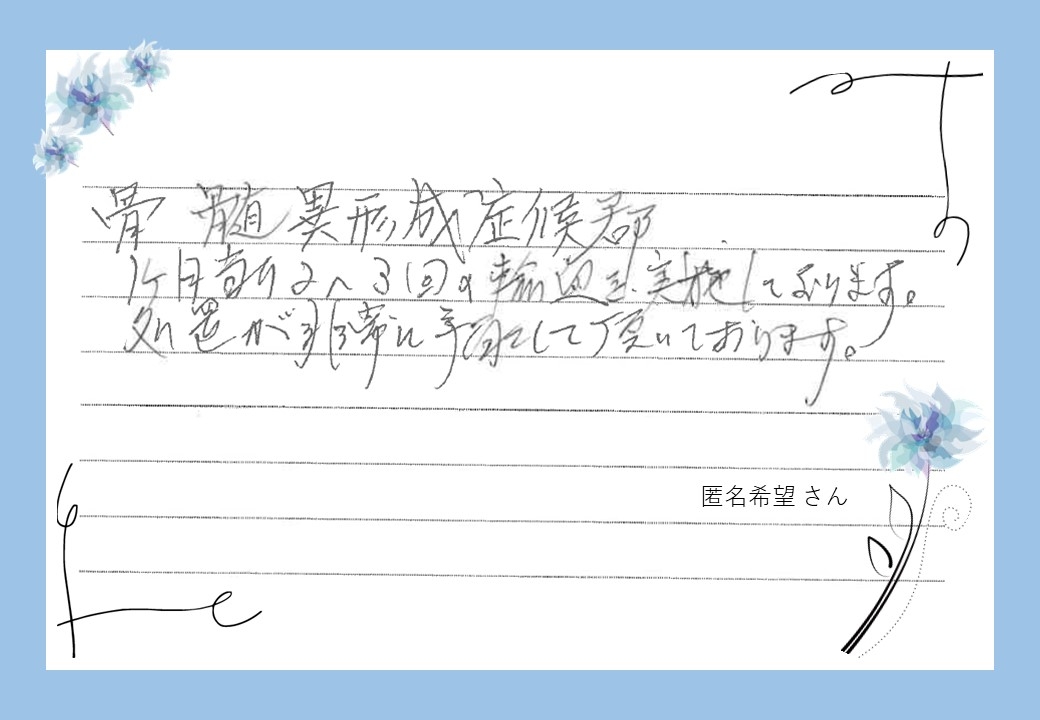 骨髄異形成症候群
1ヶ月当り2〜3回の輸血を実施しております。
処置が非常に丁寧にして頂いております。
匿名希望 さん